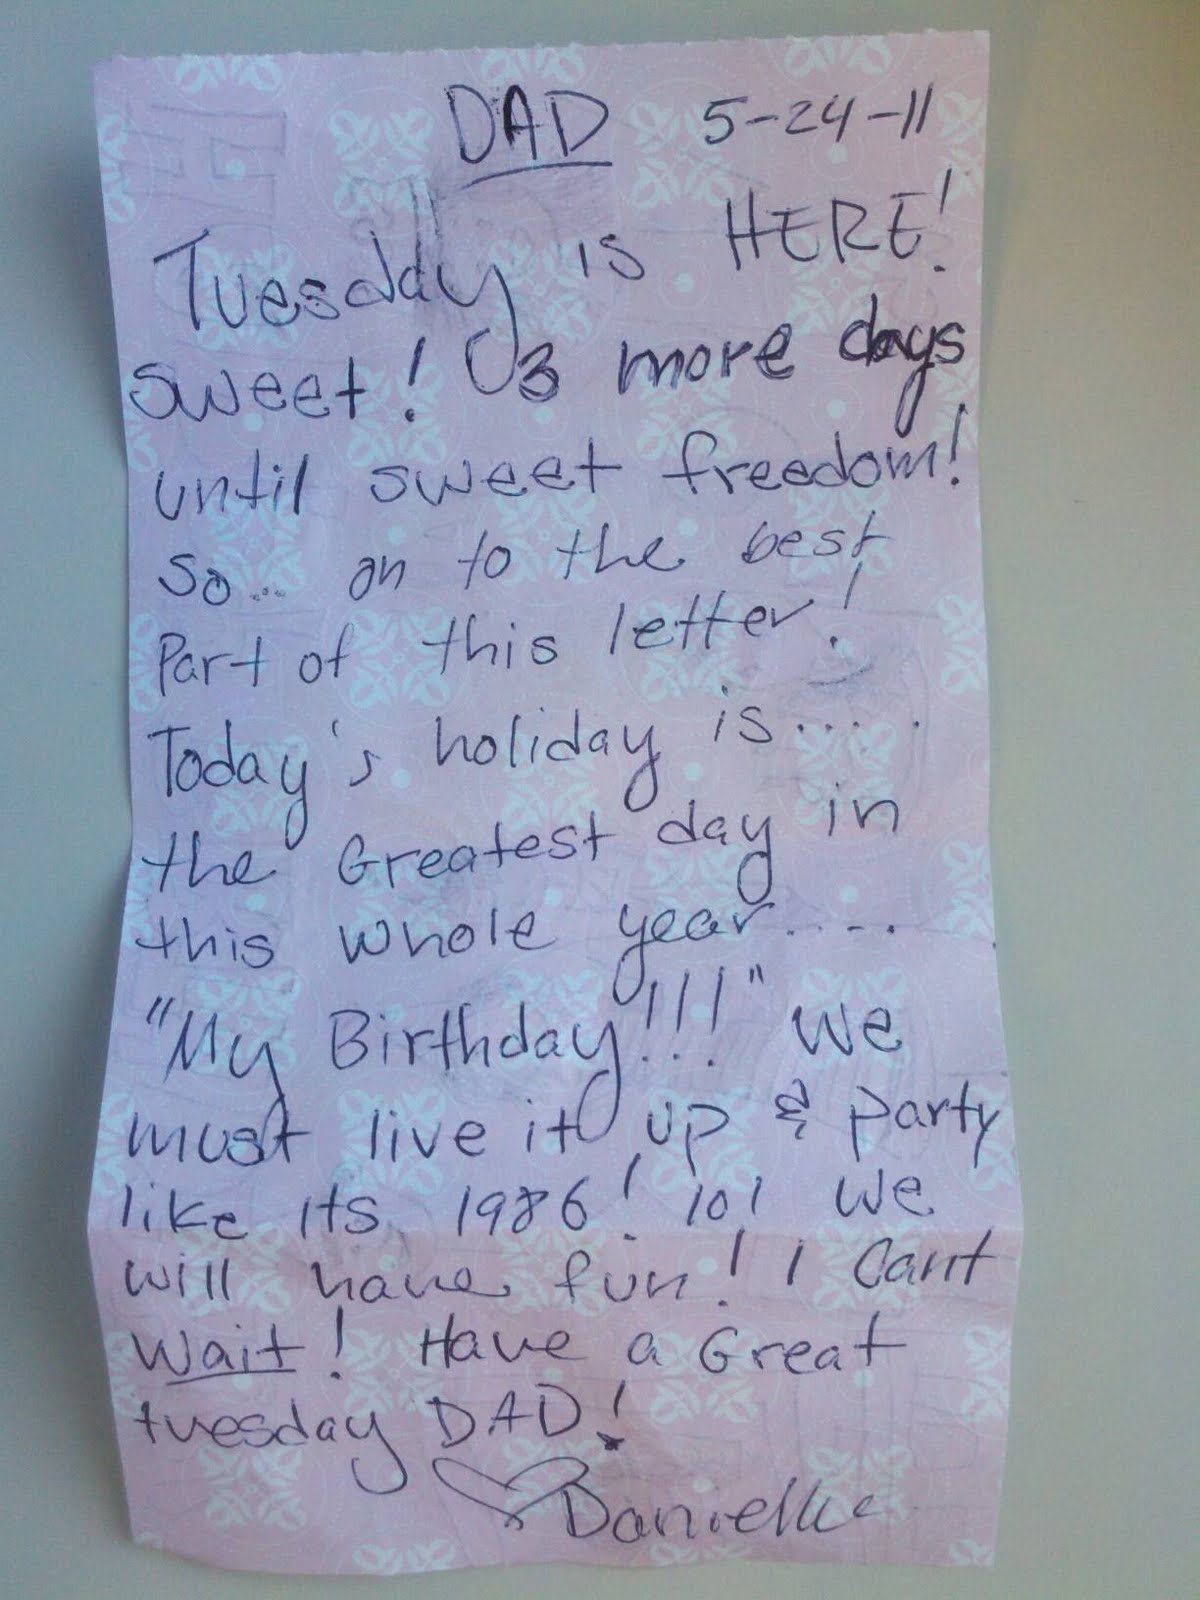 DAD 5-24-11
Tuesday is HERE!
sweet! 3 more days
until sweet freedom!
so... on to the best
Part of this letter!
Today's holiday is.....
the Greatest day in
this whole year.....
"My Birthday!!!" We
must live it up & party
like its 1986! lol We
will have fun! I Cant
Wait! Have a Great
tuesday DAD!
Danielle